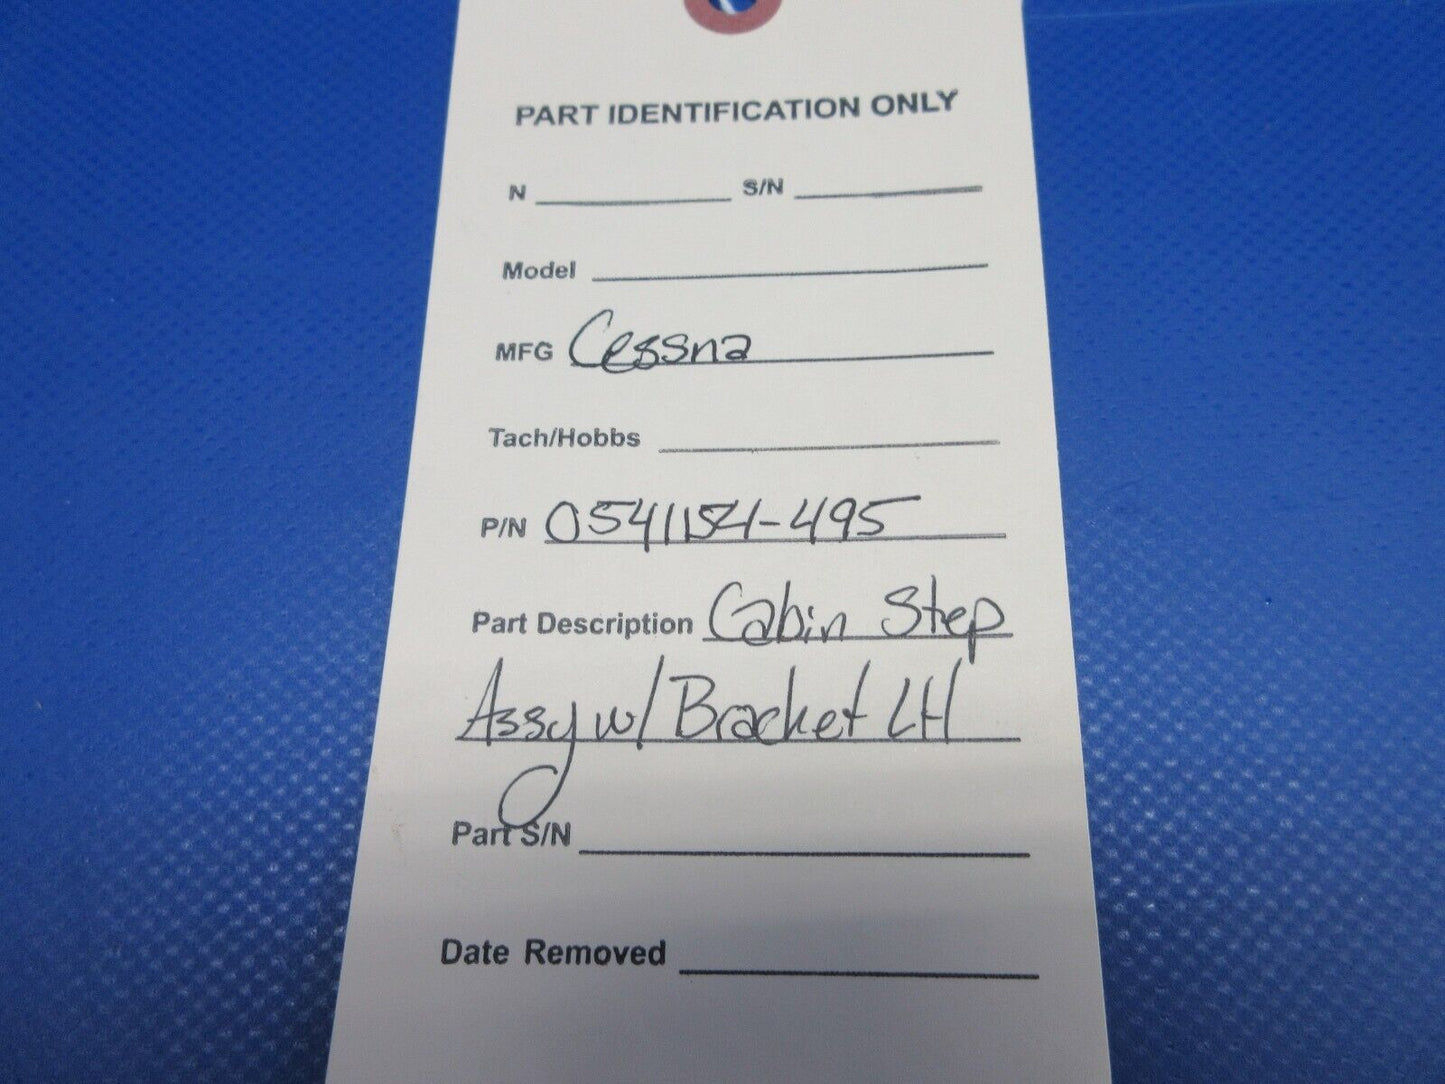 PART IDENTIFICATION ONLY
N S/N
Model
MFG Cessna
Tach/Hobbs
P/N 0541154-495
Part Description Cabin Step
Assy w/ Bracket LH
Part S/N
Date Removed